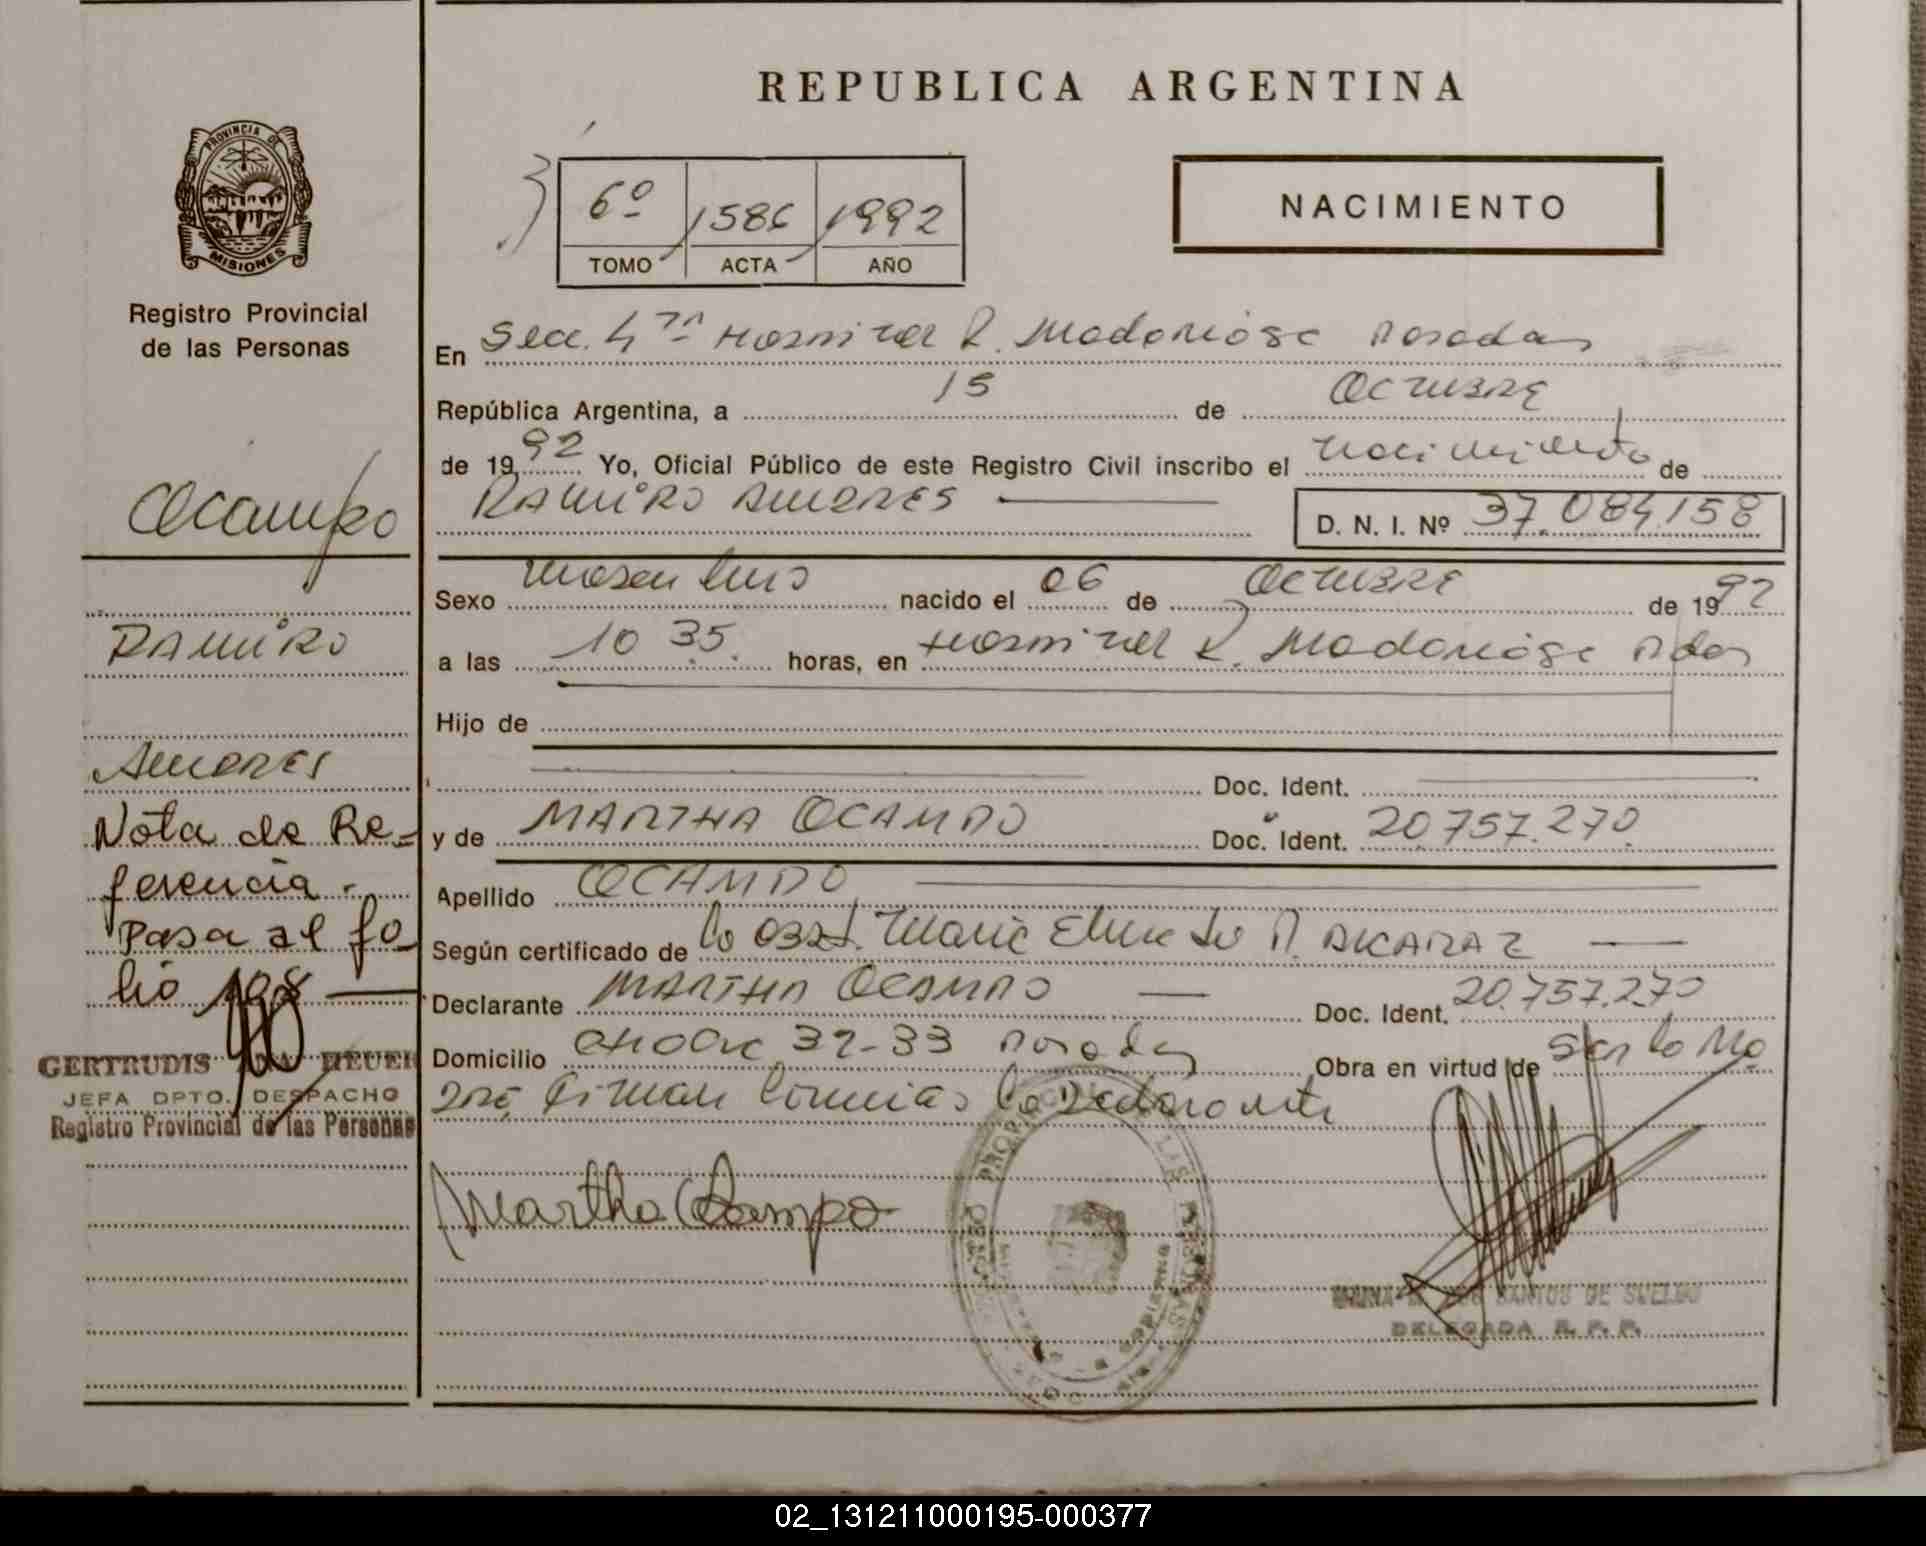 REPUBLICA ARGENTINA
PROVINCIA DE
MISIONES
Registro Provincial
de las Personas
6º 1586 1992
TOMO ACTA AÑO
NACIMIENTO
En Secc. 4ª Hospital R. Madariaga Posadas
República Argentina, a 15 de Octubre
de 1992 Yo, Oficial Público de este Registro Civil inscribo el nacimiento de
RAMIRO ANDRES
D. N. I. Nº 37.084.158
Sexo masculino nacido el 06 de Octubre de 1992
a las 10 35. horas, en Hospital R. Madariaga Pdas
Hijo de
Doc. Ident.
y de MARTHA OCAMPO Doc. Ident. 20.757.270
Apellido OCAMPO
Según certificado de la Obst. P. ALCARAZ
Declarante MARTHA OCAMPO Doc. Ident. 20.757.270
Domicilio 32-33 Posadas Obra en virtud de ser la Ma
dre, Firman la Declarante
Martha Ocampo
SANTOS DE
DELEGADA R. P. P.
Ocampo
RAMIRO
ANDRES
Nota de Re-
ferencia.
Pasa al fo-
lio 198
GERTRUDIS HEUER
JEFA DPTO. DESPACHO
Registro Provincial de las Personas
02_131211000195-000377